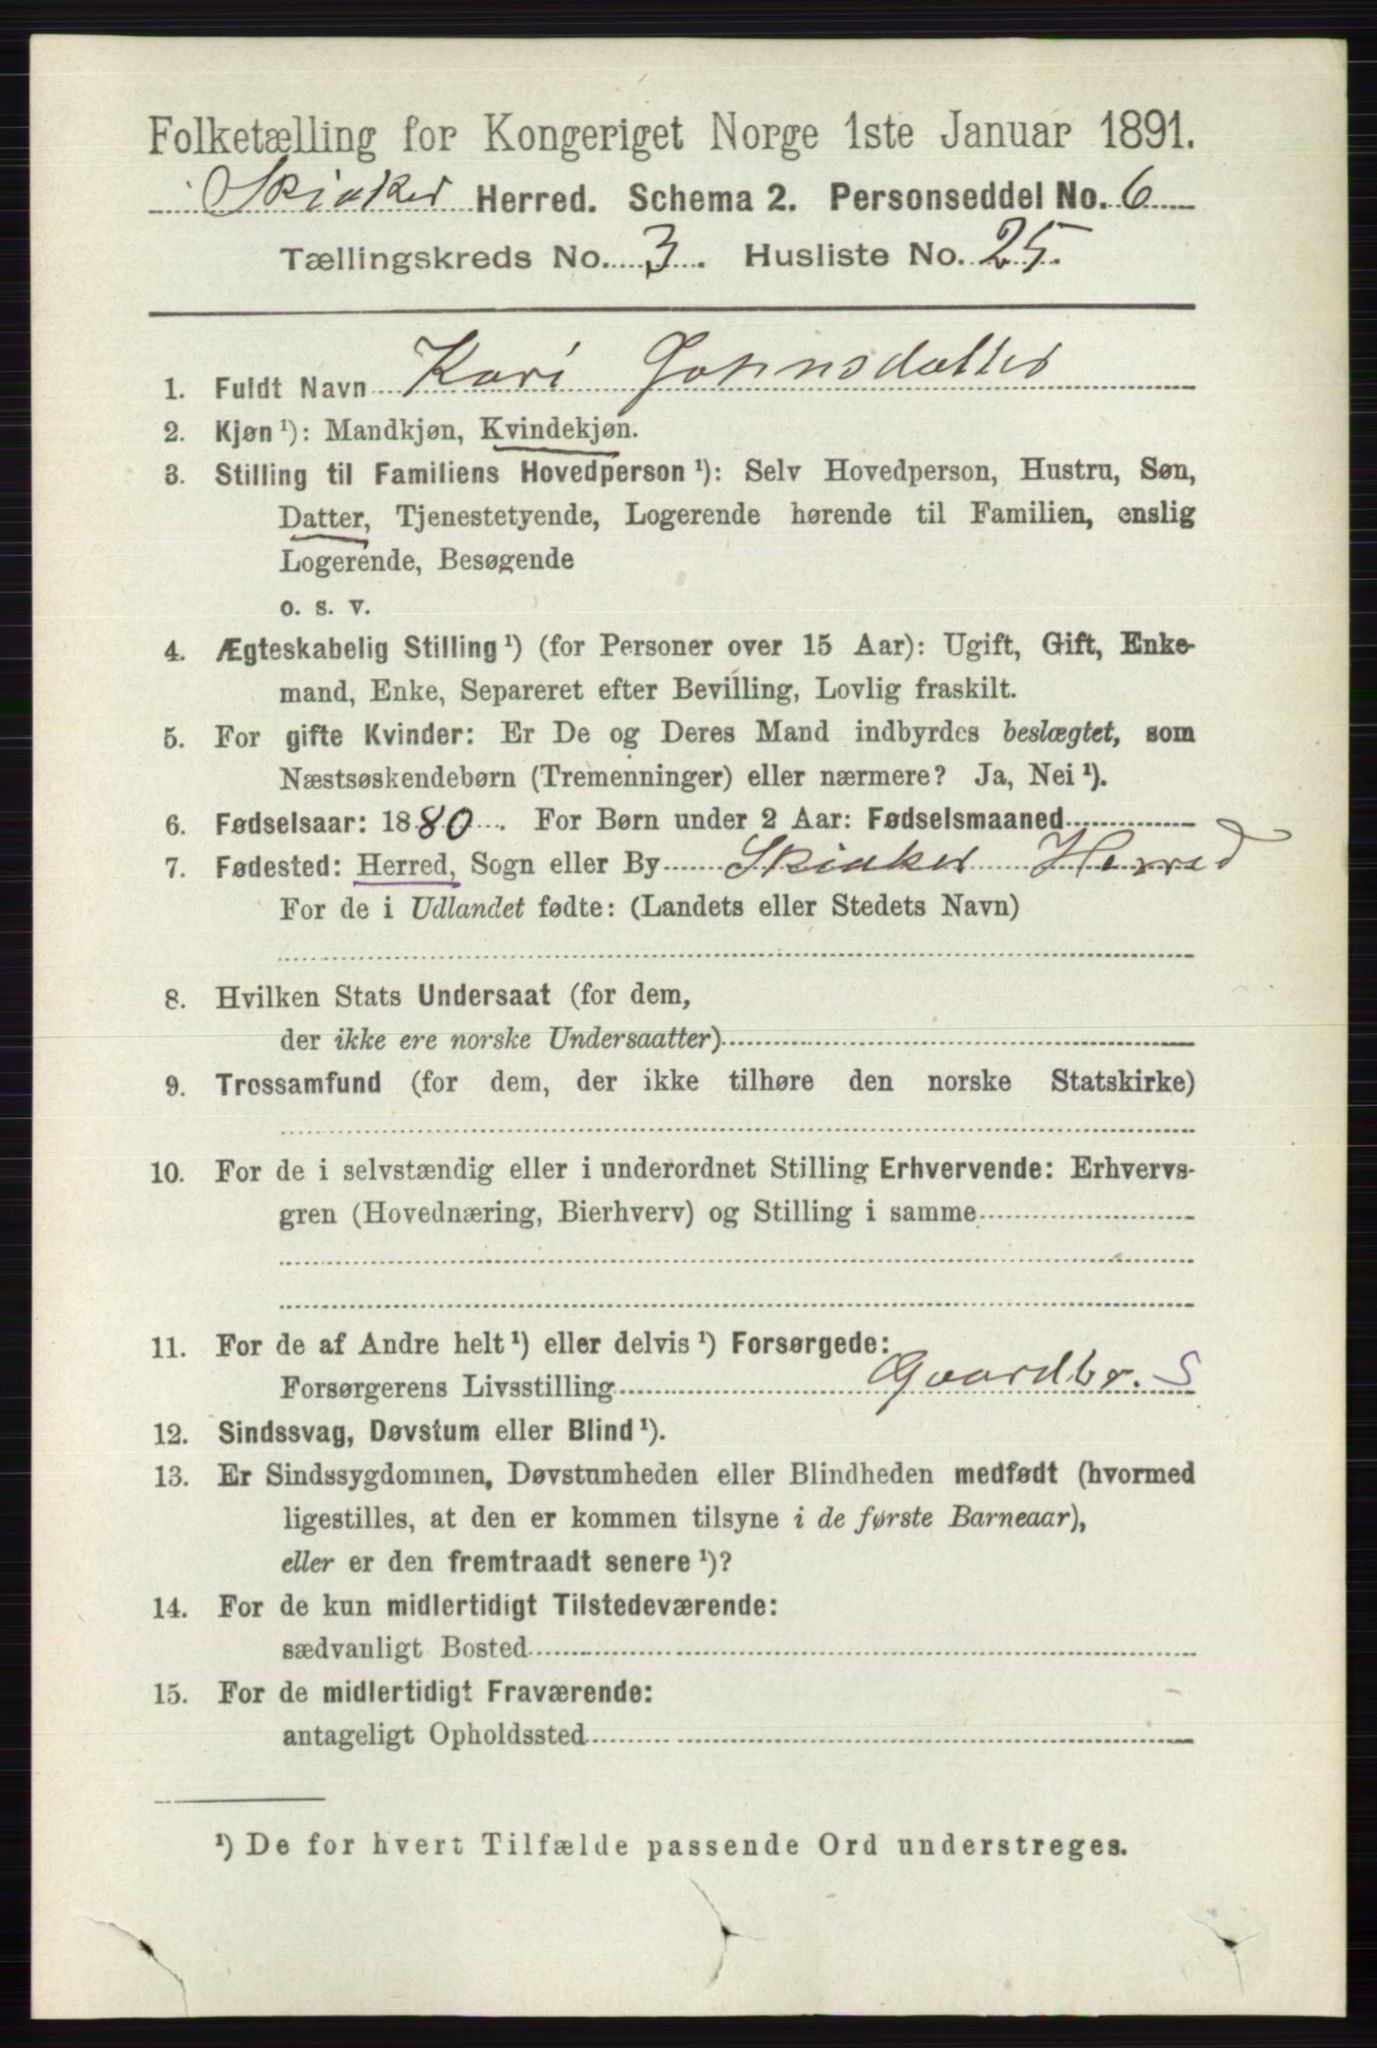 Folketælling for Kongeriget Norge 1ste Januar 1891.
Skiaker Herred. Schema 2. Personseddel No. 6
Tællingskreds No. 3. Husliste No. 25.
1. Fuldt Navn Kari Johnsdatter
2. Kjøn ¹): Mandkjøn, Kvindekjøn.
3. Stilling til Familiens Hovedperson ¹): Selv Hovedperson, Hustru, Søn,
Datter, Tjenestetyende, Logerende hørende til Familien, enslig
Logerende, Besøgende
o. s. v.
4. Ægteskabelig Stilling ¹) (for Personer over 15 Aar): Ugift, Gift, Enke-
mand, Enke, Separeret efter Bevilling, Lovlig fraskilt.
5. For gifte Kvinder: Er De og Deres Mand indbyrdes beslægtet, som
Næstsøskendebørn (Tremenninger) eller nærmere? Ja, Nei ¹).
6. Fødselsaar: 1880. For Børn under 2 Aar: Fødselsmaaned
7. Fødested: Herred, Sogn eller By Skiaker Herred
For de i Udlandet fødte: (Landets eller Stedets Navn)
8. Hvilken Stats Undersaat (for dem,
der ikke ere norske Undersaatter)
9. Trossamfund (for dem, der ikke tilhøre den norske Statskirke)
10. For de i selvstændig eller i underordnet Stilling Erhvervende: Erhvervs-
gren (Hovednæring, Bierhverv) og Stilling i samme
11. For de af Andre helt ¹) eller delvis ¹) Forsørgede:
Forsørgerens Livsstilling Gaardbr. S
12. Sindssvag, Døvstum eller Blind ¹).
13. Er Sindssygdommen, Døvstumheden eller Blindheden medfødt (hvormed
ligestilles, at den er kommen tilsyne i de første Barneaar),
eller er den fremtraadt senere ¹)?
14. For de kun midlertidigt Tilstedeværende:
sædvanligt Bosted
15. For de midlertidigt Fraværende:
antageligt Opholdssted
¹) De for hvert Tilfælde passende Ord understreges.